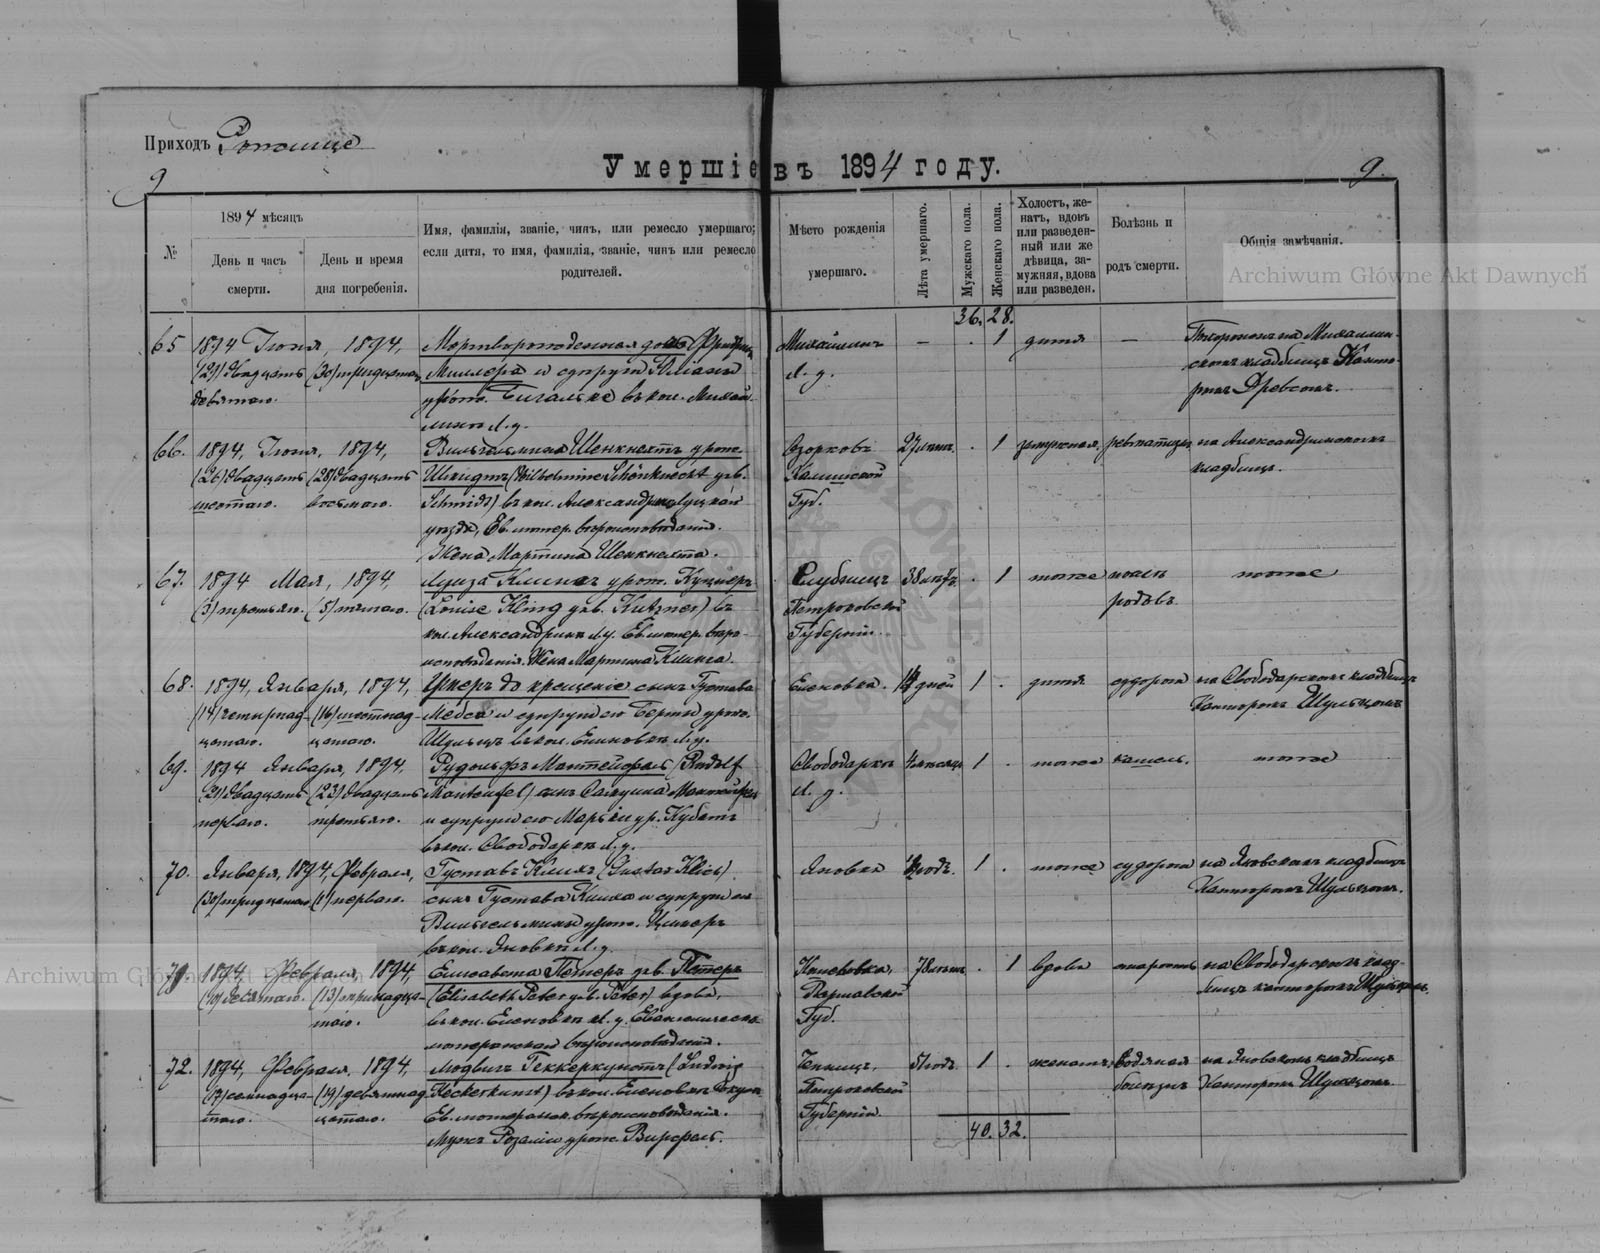 Приходъ Рожище
Умершіе въ 1894 году.
9 9.
№
1894 мѣсяцъ
День и часъ смерти.
День и время дня погребенія.
Имя, фамилія, званіе, чинъ, или ремесло умершаго;
если дитя, то имя, фамилія, званіе, чинъ или ремесло
родителей.
Мѣсто рожденія
умершаго.
Лѣта умершаго.
Мужскаго пола.
Женскаго пола.
Холостъ, же-
натъ, вдовъ
или разведен-
ный или же
дѣвица, за-
мужняя, вдова
или разведен.
Болѣзнь и
родъ смерти.
Общія замѣчанія.
Archiwum Główne Akt Dawnych
36. 28.
65 1894 Іюня, 1894, Мертворожденная дочь Фридриха Михайлинъ — . 1 дитя — Похороненъ на Михайлин-
(29) двадцать (30) тридцатаго Миллера и супруги Юліаны Л. у. скомъ кладбищѣ Канто-
девятаго. урож. Бигальке въ кол. Михай- ромъ Древсомъ.
лина Л. у.
66. 1894, Іюня, 1894, Вильгельмина Шенкнехтъ урож. Озорковъ 27 лѣтъ . 1 замужняя ревматизмъ на Александриновскомъ
(26) двадцать (28) двадцать Шмидтъ (Wilhelmine Schönknecht geb. Калишской кладбищѣ.
шестаго. восьмаго. Schmidt) въ кол. Александринъ Луцкаго Губ.
уѣзда, Ев. лютер. вѣроисповѣданія.
Жена Мартина Шенкнехта.
67. 1894 Мая, 1894, Луиза Клингъ урож. Куцнеръ 38 лѣтъ . 1 тоже послѣ тоже
(3) третьяго. (5) пятаго. (Louise Kling geb. Kutzner) въ Петроковской родовъ
кол. Александринъ Л. у. Ев. лютер. вѣро- Губерніи.
исповѣданія. Жена Мартина Клинга.
68. 1894, Января, 1894, Умеръ до крещенія сынъ Густава Еленовка. 14 дней 1 . дитя судорога на Свободарскомъ кладбищѣ
(14) четырнад- (16) шестнад- и супруги его Берты урож. Канторомъ Шульцомъ
цатаго. цатаго. Шульцъ въ кол. Еленовкѣ Л. у.
69. 1894 Января, 1894, Рудольфъ Мантейфель (Rudolf Свободарка 1 . тоже кашель. тоже
(21) двадцать (23) двадцать Manteufel) сынъ Самуила Мантейфель Л. у.
перваго. третьяго. и супруги его Маріи ур. Кубатъ
въ кол. Свободарка Л. у.
70. Января, 1894, Февраля, Густавъ Кликъ (Gustav Klick) Яновка 1 . тоже судорога на Яновскомъ кладбищѣ
(30) тридцатаго (1) перваго. сынъ Густава Клика и супруги его Канторомъ Шульцомъ.
Вильгельмины урож. Цинеръ
въ кол. Яновкѣ Л. у.
71. 1894, Февраля, 1894, Елисавета Петеръ geb. Петеръ 78 лѣтъ . 1 вдова старость на Свободарскомъ клад-
девятаго. (13) тринадца- (Elisabeth Peter geb. Peter) вдова, Варшавской бищѣ канторомъ Шульцомъ.
таго. въ кол. Еленовкѣ Л. у. Евангелическо- Губ.
лютеранскаго вѣроисповѣданія.
Archiwum Główne Akt Dawnych
72. 1894, Февраля, 1894, Людвигъ Геккеркунстъ (Ludwig 51 годъ 1 . женатъ, водяная на Яновскомъ кладбищѣ
(17) семнадца- (19) девятнад- Heckerkunst) въ кол. Еленовкѣ Петроковской болѣзнь Канторомъ Шульцомъ
таго. цатаго. Ев. лютеранск. вѣроисповѣданія. Губерніи.
Мужъ Розаліи урож. Вирфель.
40. 32.